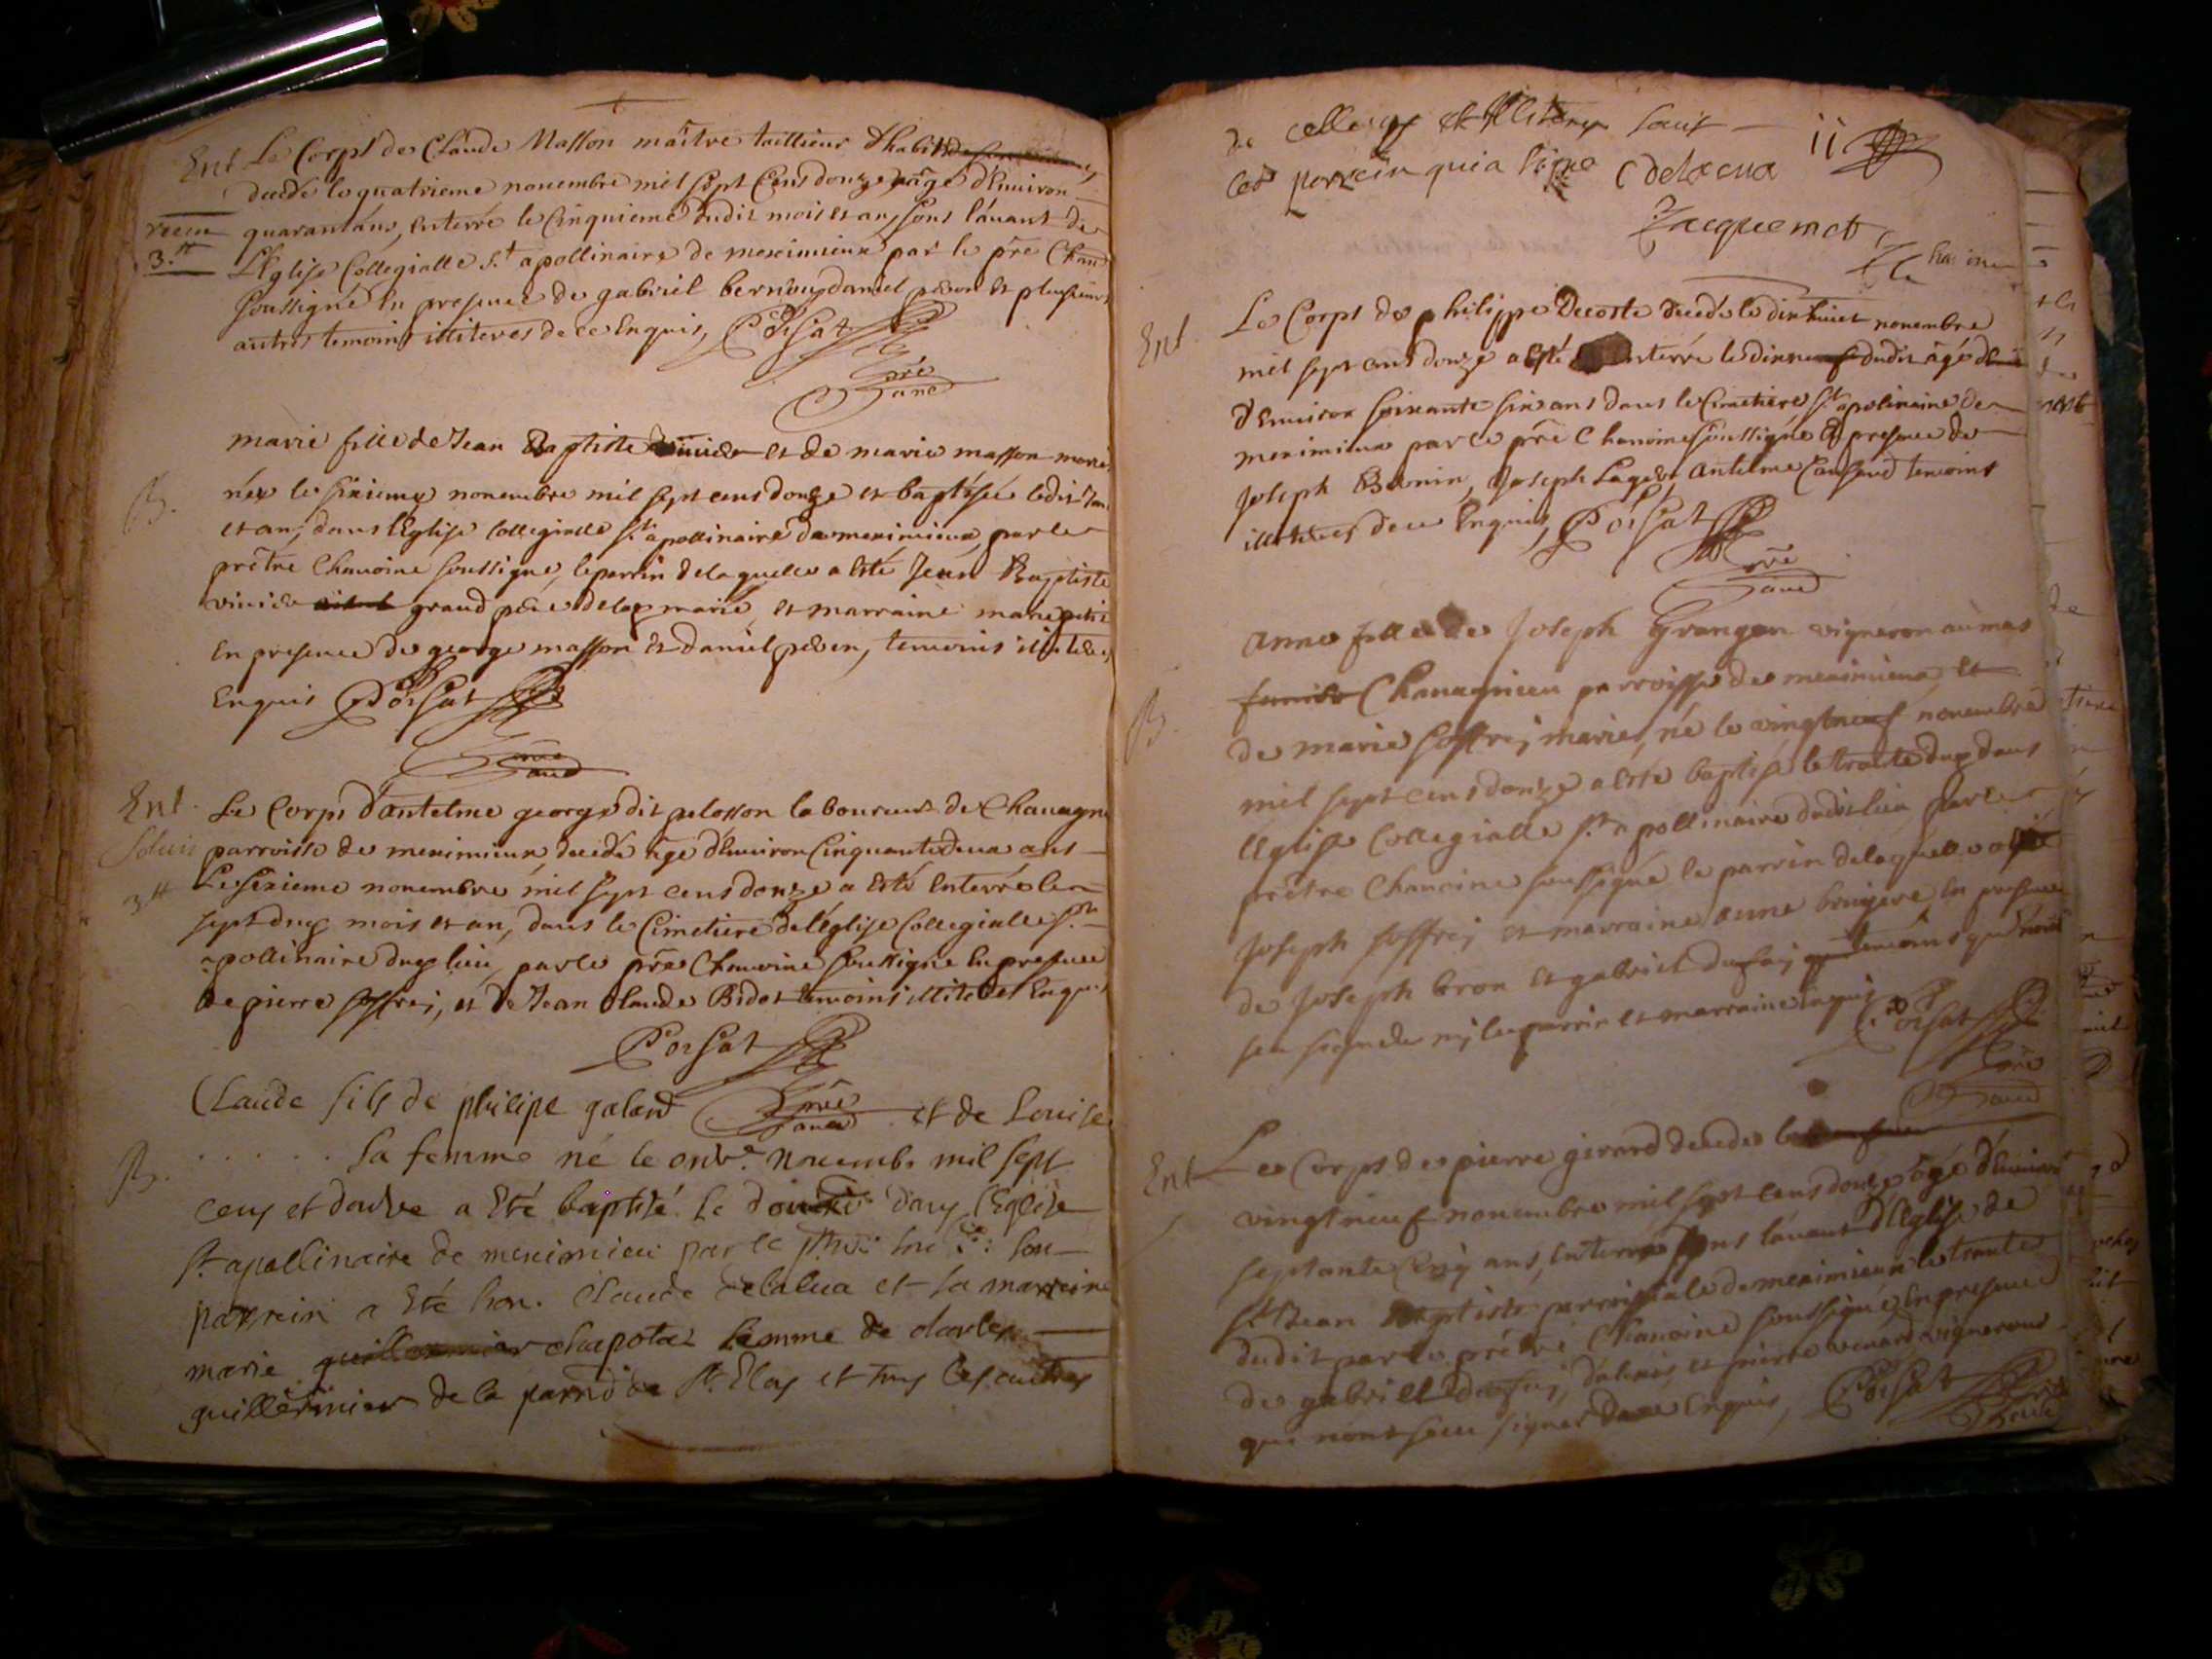 Ent Le Corps de Claude Masson maître taillieur d'habits
decedé le quatrieme nouembre mil sept Cens donze, âgé d'Enuiron
receu quarantáns, enterré le Cinquieme dudit mois et an, sous l'auant de
3.tt L'Eglise Collegialle S.t apollinaire de meximieux par le pre Chan
soussigné En presence de gabriel bernoux daniel peuen et plusieurs
autres temoins illiteres de ce Enquis, Poisat
pre
Chane
marie fille de Jean Baptiste et de marie masson mariés
B. née le sixieme nouembre mil sept cens donze et baptisée ledit Jour
et an, dans l'Eglise Collegialle S.t apollinaire de meximieux, par le
prêtre Chanoine soussigné, le parrin de laquelle a Esté Jean Baptiste
grand pere de lad marie, et marraine marie
En presence de george masson et daniel peuen, temoins illiteres
Enquis Poisat
pre
Chane
Ent. Le Corps d'antelme george dit pelosson laboureur de Chauagn
Soluit parroisse de meximieux decedé âgé d'Enuiron Cinquante deux ans
3tt Le sixieme nouembre mil sept cens donze a Esté Enterré le
sept dud mois et an, dans le Cimetiere de l'église Collegialle S.t
apollinaire dud lieu, par le pre Chanoine soussigné En presence
de pierre soffrei, et de Jean Claude Bidat temoins illiteres Enquis
Poisat
Claude fils de philipe galand et de Louise
pre
Chane
B. . . . . . . sa femme né le onze nouembr mil sept
cens et douze a Eté baptisé le douze dans l'Eglise
St. apollinaire de meximieu par le
parrein a Eté hon. Claude delacua et la marreine
marie chapotat femme de charles
guillerminier de la parroisse St. Eloy et tous les autres
de illiteres sauf
led parrein qui a signé C Delacua 11
Jacquemet
Chanoine
Ent. Le Corps de philippe Decoste decedé le dix huict nouembre
mil sept cens donze a Esté enterré le dixneuf dudit âgé
d'Enuiron soixante six ans dans le Cimetiere S.t apolinaire de
meximieux par le pre Chanoine soussigné En presence de
Joseph Bonnin, Joseph Laget, antelme temoins
illiteres de ce Enquis, Poisat
pre
Chane
anne fille de Joseph Grangeon vigneron au mas
B. Chauagnieu parroisse de meximieux, et
de marie soffrei mariés, né le vingtneuf nouembre
mil sept cens donze a Esté baptisé le trante dud dans
l'Eglise Collegialle S.t apollinaire dudit lieu par le
prêtre Chanoine soussigné le parrin de laquelle a Esté
Joseph soffrei et marraine anne bruyere, En presence
de Joseph bron et gabriel dufai, temoins qui n'ont
sceu signer de ny le parrin et marraine Enquis Poisat
pre
Chane
Ent Le Corps de pierre girard decedé le
vingt neuf nouembre mil sept cens donze âgé d'Enuiron
septante Cinq ans, Enterré sous l'auant d'Eglise de
S.t Jean Baptiste parroissiale de meximieux le trante
dudit par le prêtre Chanoine soussigné, En presence
de gabriel dufai, et pierre vignerons
qui n'ont sceu signer de ce Enquis, Poisat
pre
Chane